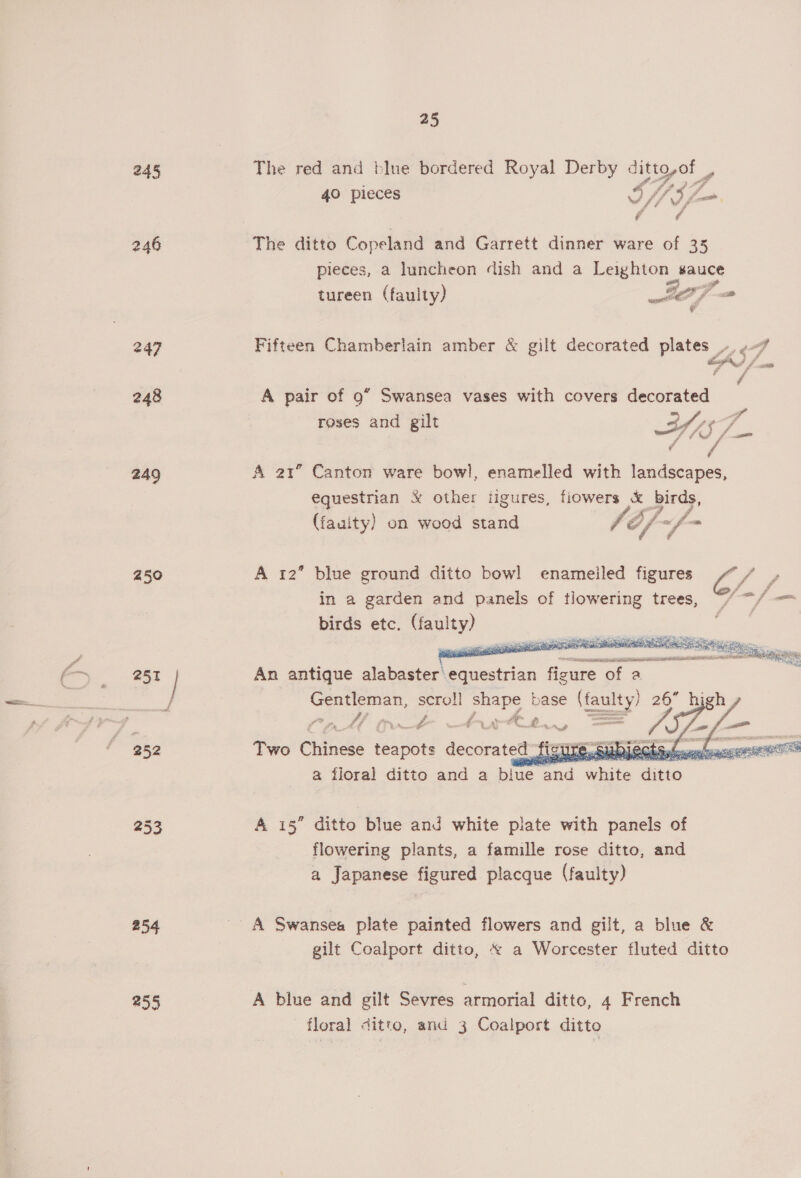 25
245 The red and blue bordered Royal Derby ditto, of
40 pieces
246 The ditto Copeland and Garrett dinner ware of 35
pieces, a luncheon dish and a Leighton sauce
tureen (faulty)
247 Fifteen Chamberlain amber & gilt decorated plates
248 A pair of 9" Swansea vases with covers decorated
roses and gilt
249 A 21" Canton ware bowl, enamelled with landscapes,
equestrian & other figures, flowers & birds,
(faulty) on wood stand
250 A 12" blue ground ditto bowl enamelled figures
in a garden and panels of flowering trees,
birds etc. (faulty)
251 An antique alabaster equestrian figure of a
Gentleman, scroll shape base (faulty) 26" high
252 Two Chinese teapots decorated figure subjects,
a floral ditto and a blue and white ditto
253 A 15" ditto blue and white plate with panels of
flowering plants, a famille rose ditto, and
a Japanese figured placque (faulty)
254 A Swansea plate painted flowers and gilt, a blue &
gilt Coalport ditto, & a Worcester fluted ditto
255 A blue and gilt Sevres armorial ditto, 4 French
floral ditto, and 3 Coalport ditto